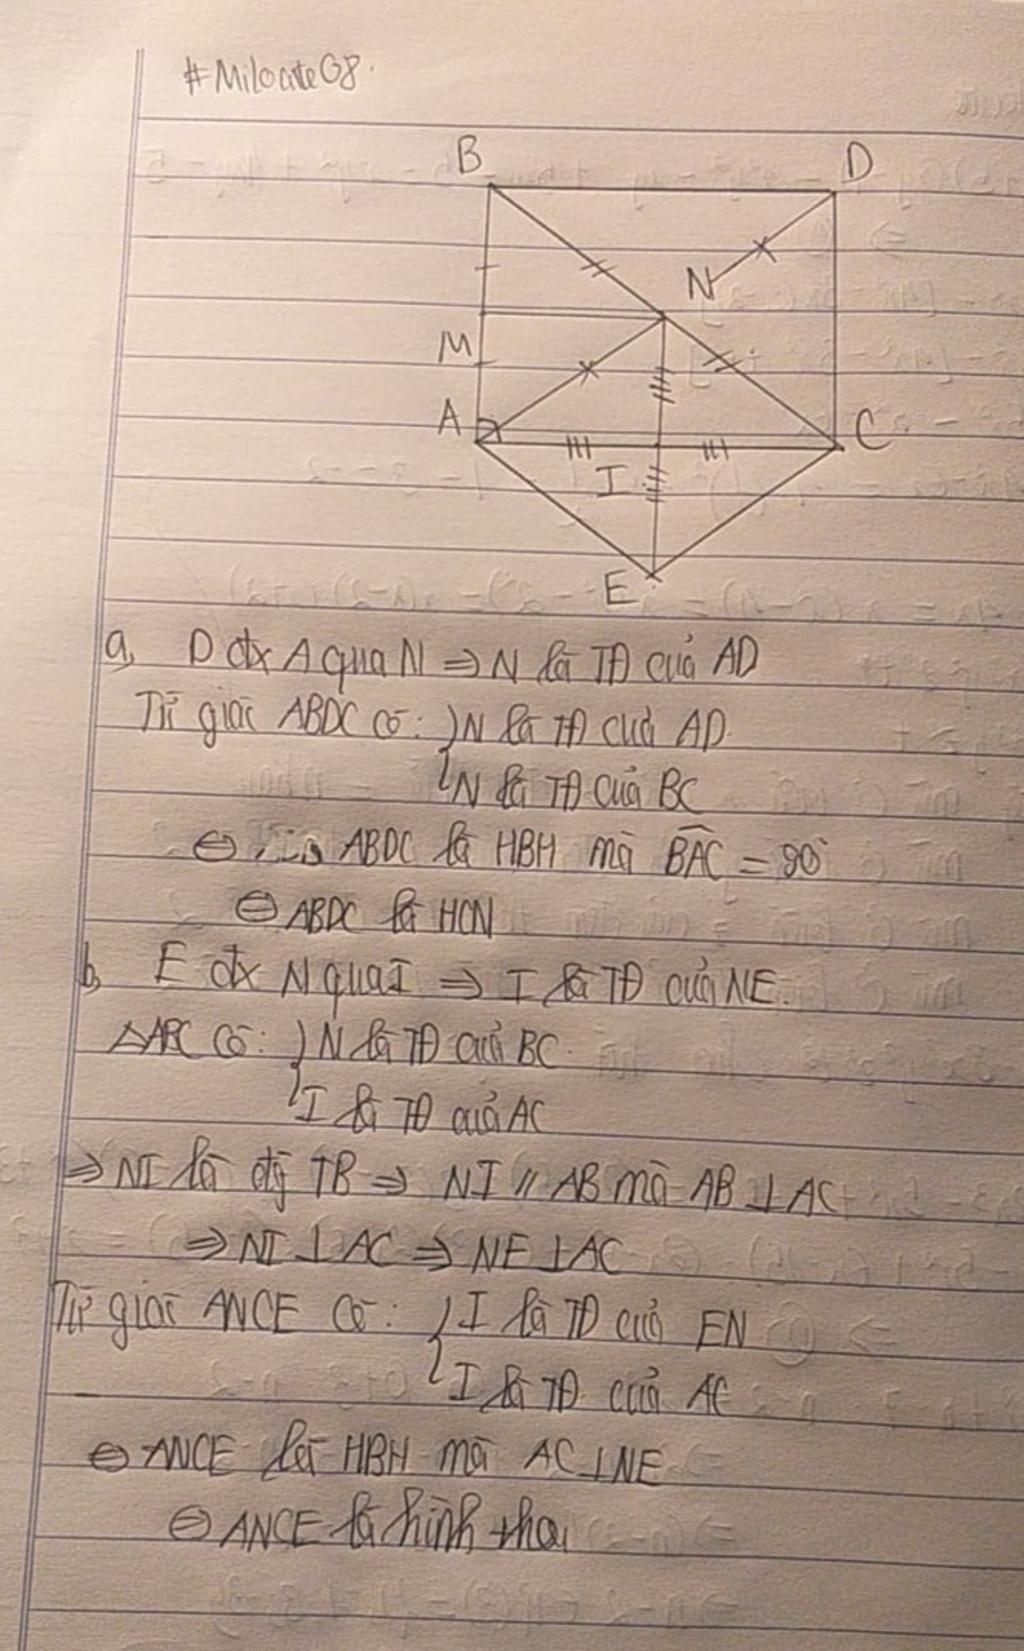 #Miloate08.
B
D
N
M
A
C
I
E
a, D đx A qua N ⇒ N là TĐ của AD
Tứ giác ABDC có: N là TĐ của AD
N là TĐ của BC
⇔ ABDC là HBH mà BAC = 90°
⇔ ABDC là HCN
b, E đx N qua I ⇒ I là TĐ của NE.
△ABC có: N là TĐ của BC
I là TĐ của AC
⇒ NI là đg TB ⇒ NI // AB mà AB ⊥ AC
⇒ NI ⊥ AC ⇒ NE ⊥ AC
Tứ giác ANCE có: I là TĐ của EN
I là TĐ của AC
⇔ ANCE là HBH mà AC ⊥ NE
⇔ ANCE là hình thoi